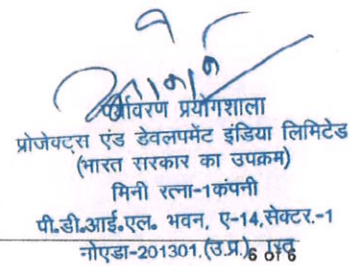 पर्यावरण प्रयोगशाला
प्रोजेक्ट्स एंड डेवलपमेंट इंडिया लिमिटेड
(भारत सरकार का उपक्रम)
मिनी रत्ना-1कंपनी
पी.डी.आई.एल. भवन, ए-14,सेक्टर.-1
नोएडा-201301.(उ.प्र.)
6 of 6